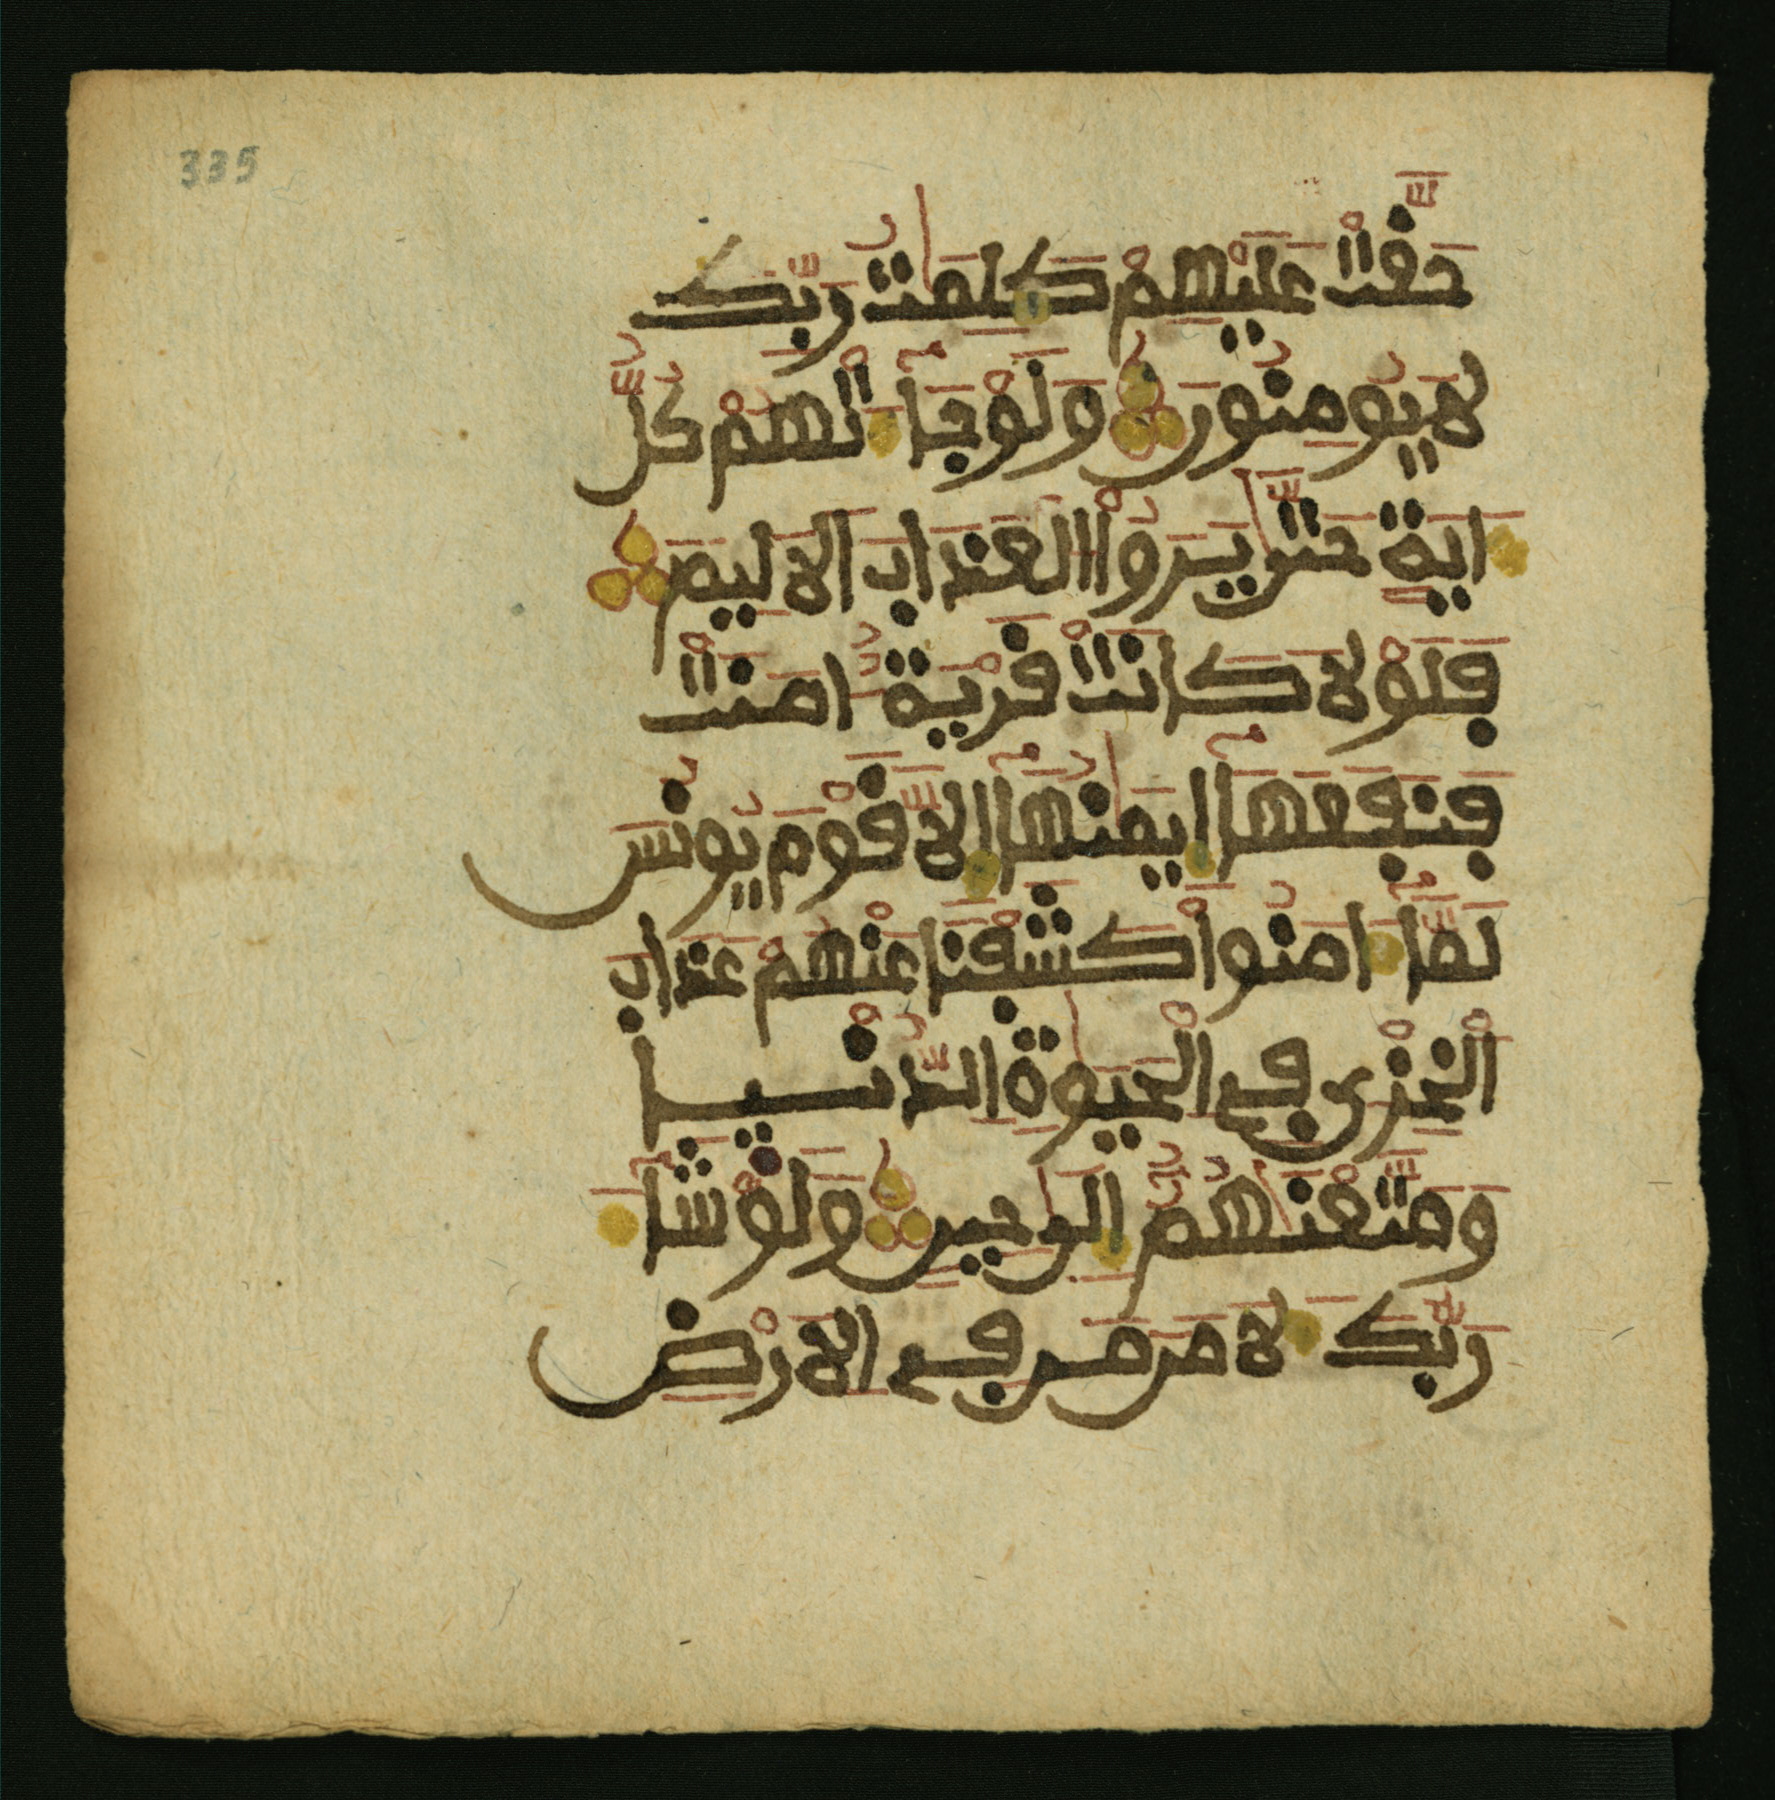 335
حَقَّتْ عَلَيْهِمْ كَلِمَٰتُ رَبِّكَ
لَا يُومِنُونَ وَلَوْ جَآءَتْهُمْ كُلُّ
ءَايَةٍ حَتَّىٰ يَرَوُاْ الْعَذَابَ الَالِيمَ
فَلَوْلَا كَانَتْ قَرْيَةٌ ـامَنَتْ
فَنَفَعَهَآ إِيمَٰنُهَآ إِلَّا قَوْمَ يُونُسَ
لَمَّآ ءَامَنُواْ كَشَفْنَا عَنْهُمْ عَذَابَ
اَلْخِزْيِ فِے الْحَيَوٰةِ الدُّنْيَا
وَمَتَّعْنَٰهُمُۥٓ إِلَىٰ حِينٍ وَلَوْ شَآءَ
رَبُّكَ لَأَمَنَ مَن فِے الَارْضِ